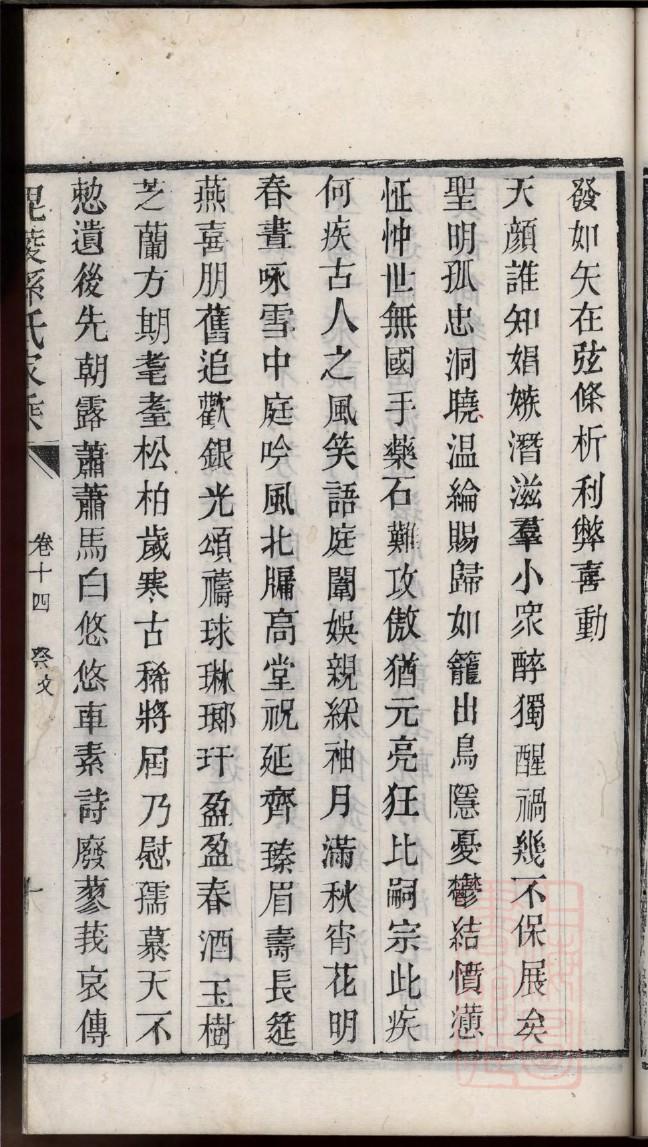 發如矢在弦條析利弊喜動
天顏誰知娼嫉潛滋羣小眾醉獨醒禍幾不保展矣
聖明孤忠洞曉温綸賜歸如籠出鳥隱憂鬱結憤懣
怔忡世無國手藥石難攻傲猶元亮狂比嗣宗此疾
何疾古人之風笑語庭闈娛親綵袖月滿秋宵花明
春晝咏雪中庭吟風北牖高堂祝延齊臻眉壽長筵
燕喜朋舊追歡銀光頌禱球琳瑯玕盈盈春酒玉樹
芝蘭方期耄耋松柏歲寒古稀將屆乃慰孺慕天不
憗遺後先朝露蕭蕭馬白悠悠車素詩廢蓼莪哀傳
毘陵孫氏家乘 卷十四 祭文